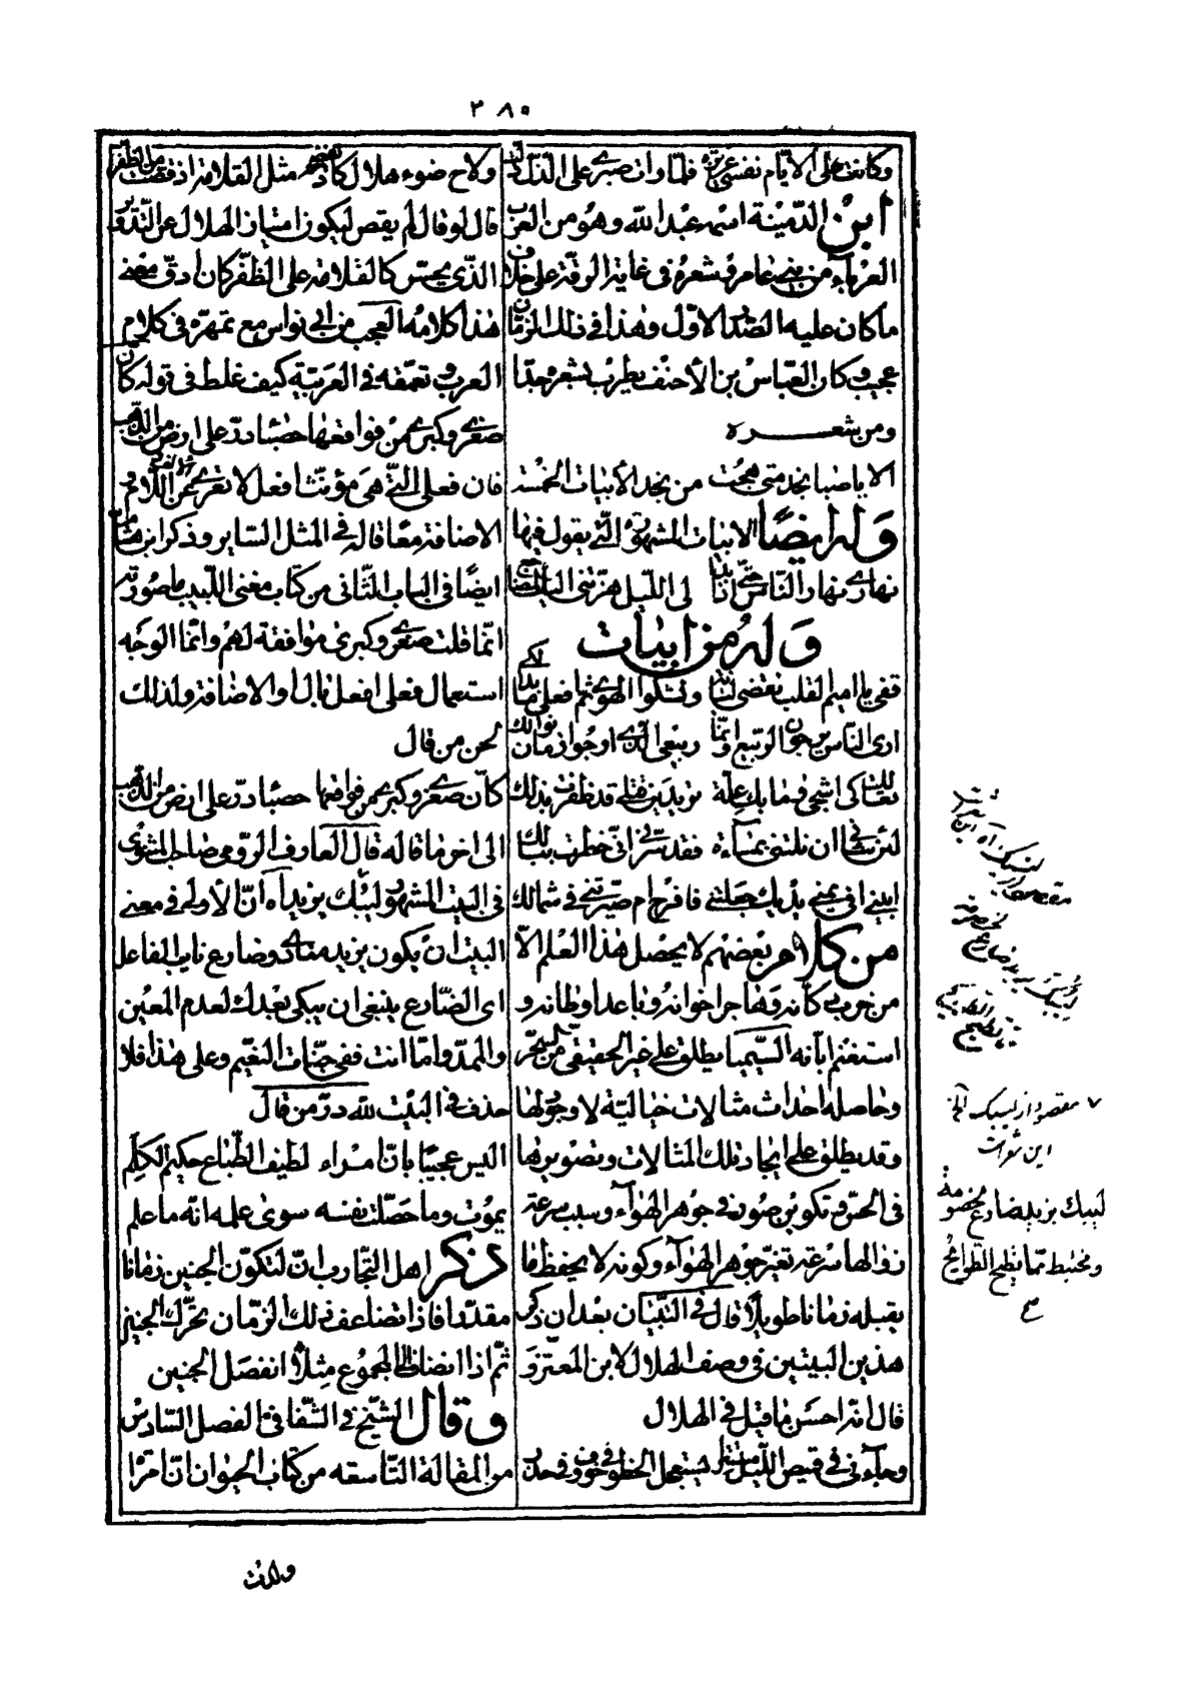 ٣٨٥
وكانت على الايام نفسى عزيزة فلما رات صبرى على الذل ذلت
ابن الدمينة اسمه عبد الله وهو من العرب
العرباء من بنى عامر وشعره فى غاية الرقة على خلاف
ما كان عليه الصدر الاول وهذا فى ذلك الزمان
عجيب وكان العباس بن الاحنف يطرب بشعره جدا
ومن شعره
الا يا صبا نجد متى هجت من نجد الأبيات الخمسة
وله ايضًا الابيات المشهورة التى يقول فيها
نهارى نهار الناس حتى اذا بدا لى الليل هزتنى اليك المضاجع
وله من ابيات
قفى يا اميم القلب نقضى لبانة ونشكوا الهوى ثم افعلى ما بدا لك
ارى الناس يرجون الربيع وانما ربيعى الذى ارجو زمان نوالك
تعاللت كى اشجى وما بك علة تريدين قتلى قد ظفرت بذلك
لئن ساءنى ان نلتنى بمساءة فقد سرنى انى خطرت ببالك
ابينى افى يمنى يديك جعلتنى فافرح ام صيرتنى فى شمالك
من كلام بعضهم لا يحصل هذا العلم الا
من خرب كاندوها جر اخواندو باعد اوطاندو
استغنم ابانه السيميا يطلق على غير الحقيقى من السحر
وحاصله احداث مثالات خيالية لا وجود لها
وقد يطلق على ايجاد تلك المثالات وتصويرها
فى الحس وتكوين صور فى جوهر الهوآء وسبب سرعة
زوالها سرعة تغير جوهر الهوآء وكونه لا يحفظ ما
يقبله زمانا طويلا قال فى التبيان بعد ان ذكر
هذين البيتين فى وصف الهلال لابن المعتز و
قال انه احسن ما قيل فى الهلال
وجآءنى فى قميص الليل مستترا يستعجل الخطو فى خوف وفى حذر
ولاح ضوء هلال كاد يفضحه مثل القلامة اذ قصت من الظفر
قال لو قال لم يقص ليكون امتياز الهلال عن التدوير
الذى يحس كالقلامة على الظفر كان ادق معنى
هذا كلامه العجب من ابى نواس مع تمهره فى كلام
العرب وتعمقه فى العربية كيف غلط فى قوله كان
صغرى وكبرى من فواقعها حصباء در على ارض من الذهب
فان فعلى التى هى مؤنث افعل لا تعرى عن اللام و
الاضافة معًا قاله فى المثل الساير وذكر ابن هشام
ايضًا فى الباب الثانى من كتاب مغنى اللبيب ما صورته
انما قلت صغرى وكبرى موافقة لهم وانما الوجه
استعمال فعلى افعل بال او الاضافة ولذلك
لحن من قال
كان صغرى وكبرى من فواقعها حصباء در على ارض من الذهب
الى اخر ما قاله قال العارف الرومى صاحب المثنوى
فى البيت المشهور ليبك يزيد اه ان الاولى فى معنى
البيت ان يكون يزيد منادى وضارع نايب الفاعل
اى الضارع ينبغى ان يبكى بعدك لعدم المعين
والممد واما انت ففى جنات النعيم وعلى هذا فلا
حذف فى البيت لله در من قال
اليس عجيبًا بان امراء لطيف الطباع حكيم الكلم
يموت وما حصلت نفسه سوى علمه انه ما علم
ذكر اهل التجارب ان لتكون الجنين زمانا
مقدرا فاذا تضاعف ذلك الزمان تحرك الجنين
ثم اذا انضاف الى المجموع مثلاه انفصل الجنين
وقال الشيخ فى الشفا فى الفصل السادس
من المقالة التاسعه من كتاب الحيوان ان امراة
مقصود از ليبك الخ
اين شعر است
ليبك يزيد ضارع لخصومة
ومختبط مما تطيح الطوائح
ولدت